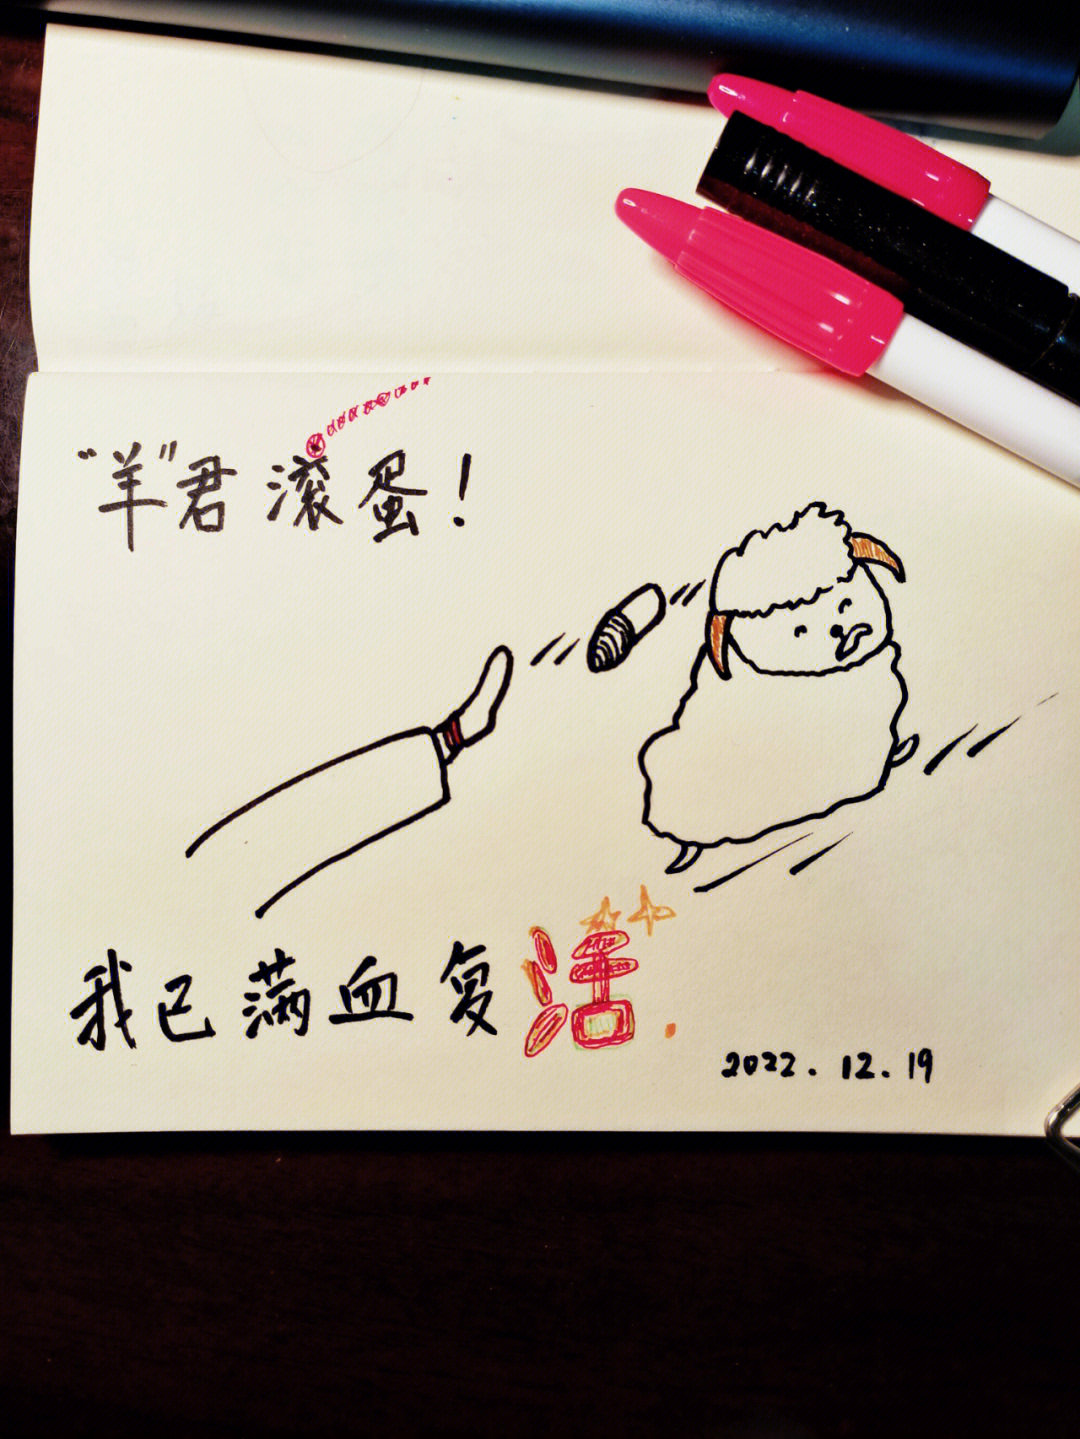 “羊”君滚蛋！
我已满血复活.
2022.12.19